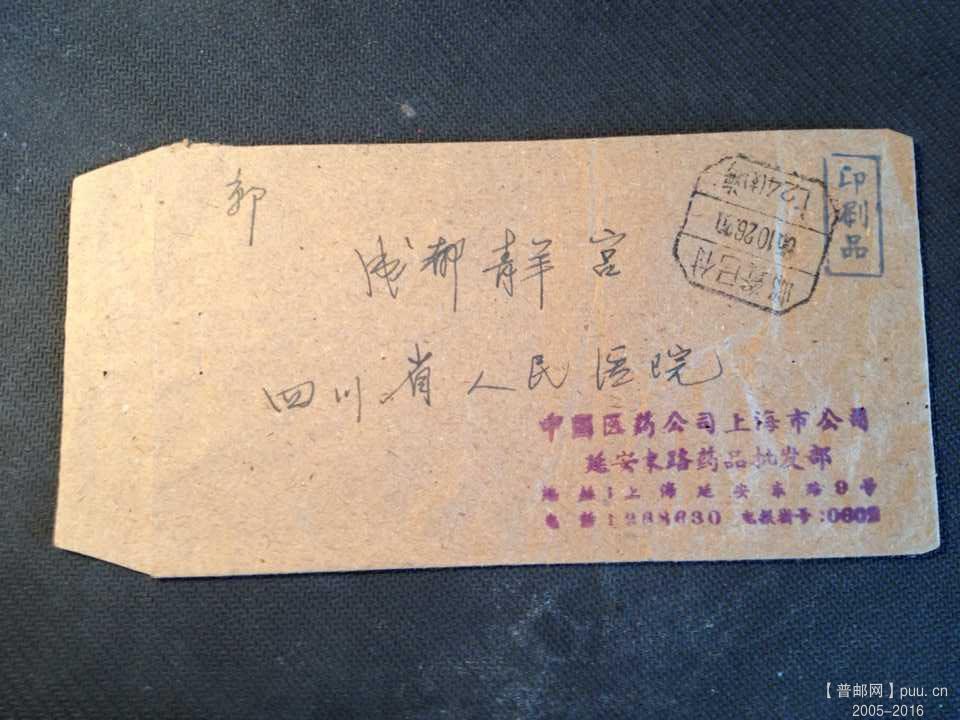 郭
成都青羊宫
四川省人民医院
印刷品
上海
邮资已付
中國医药公司上海市公司
延安东路药品批发部
地址:上海延安东路9号
电话:268630 电报挂号:0602
【普邮网】puu.cn
2005-2016